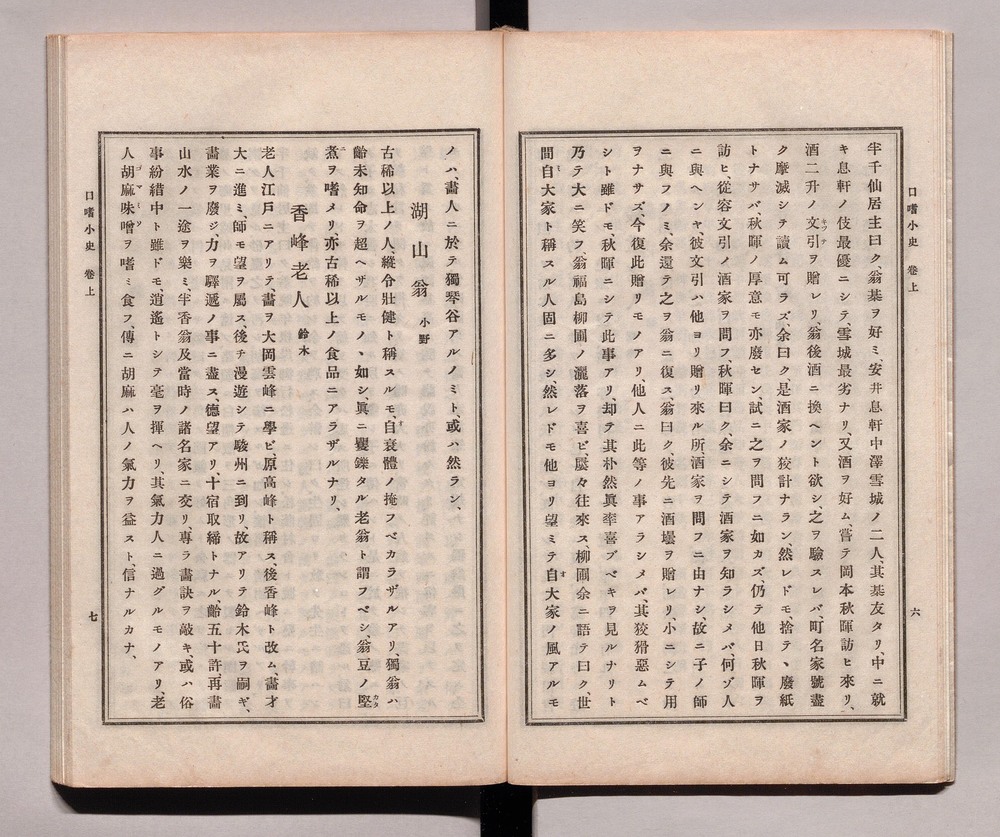 口嗜小史 卷上
六
半千仙居主曰ク翁棊ヲ好ミ、安井息軒中澤雪城ノ二人、其棊友タリ、中ニ就
キ息軒ノ伎最優ニシテ、雪城最劣ナリ、又酒ヲ好ム、嘗テ岡本秋暉訪ヒ來リ、
酒二升ノ文引ヲ贈レリ、翁後酒ニ換ヘント欲シ、之ヲ驗スレバ、町名家號盡
ク摩滅シテ讀ム可ラズ、余曰ク、是酒家ノ狡計ナラン、然レドモ、捨テヽ廢紙
トナサバ、秋暉ノ厚意モ亦廢セン、試ニ之ヲ問フニ如カズ、仍テ他日秋暉ヲ
訪ヒ、從容文引ノ酒家ヲ問フ、秋暉曰ク、余ニシテ酒家ヲ知ラシメバ、何ゾ人
ニ與ヘンヤ、彼文引ハ他ヨリ贈リ來ル所、酒家ヲ問フニ由ナシ、故ニ子ノ師
ニ與フノミ、余還テ之ヲ翁ニ復ス、翁曰ク、彼先ニ酒壜ヲ贈レリ、小ニシテ用
ヲナサズ、今復此贈リモノアリ、他人ニ此等ノ事アラシメバ、其狡猾惡ムベ
シト雖ドモ、秋暉ニシテ此事アリ、却テ其朴然眞率喜ブベキヲ見ルナリト
乃テ大ニ笑フ、翁福島柳圃ノ灑落ヲ喜ビ、屢々往來ス、柳圃余ニ語テ曰ク、世
間自大家ト稱スル人固ニ多シ、然レドモ他ヨリ望ミテ自大家ノ風アルモ
ノハ、畫人ニ於テ獨琴谷アルノミト、或ハ然ラン、
湖山翁 小野
古稀以上ノ人縱令壯健ト稱スルモ、自衰體ノ掩フベカラザルアリ、獨翁ハ
齡未知命ヲ超ヘザルモノヽ如シ、眞ニ矍鑠タル老翁ト謂フベシ、翁豆ノ堅
煮ヲ嗜メリ、亦古稀以上ノ食品ニアラザルナリ、
香峰老人 鈴木
老人江戸ニアリテ、畫ヲ大岡雲峰ニ學ビ、原高峰ト稱ス、後香峰ト改ム、畫才
大ニ進ミ、師モ望ヲ屬ス、後チ漫遊シテ駿州ニ到リ、故アリテ鈴木氏ヲ嗣ギ、
畫業ヲ廢ジ、力ヲ驛遞ノ事ニ盡ス、德望アリ、十宿取締トナル、齡五十許、再畫
山水ノ一途ヲ樂ミ、半香翁及當時ノ諸名家ニ交リ、專ラ畫訣ヲ敲キ、或ハ俗
事紛錯中ト雖ドモ、逍遙トシテ毫ヲ揮ヘリ、其氣力人ニ過グルモノアリ、老
人胡麻味噌ヲ嗜ミ食フ、傳ニ胡麻ハ人ノ氣力ヲ益スト、信ナルカナ、
口嗜小史 卷上
七